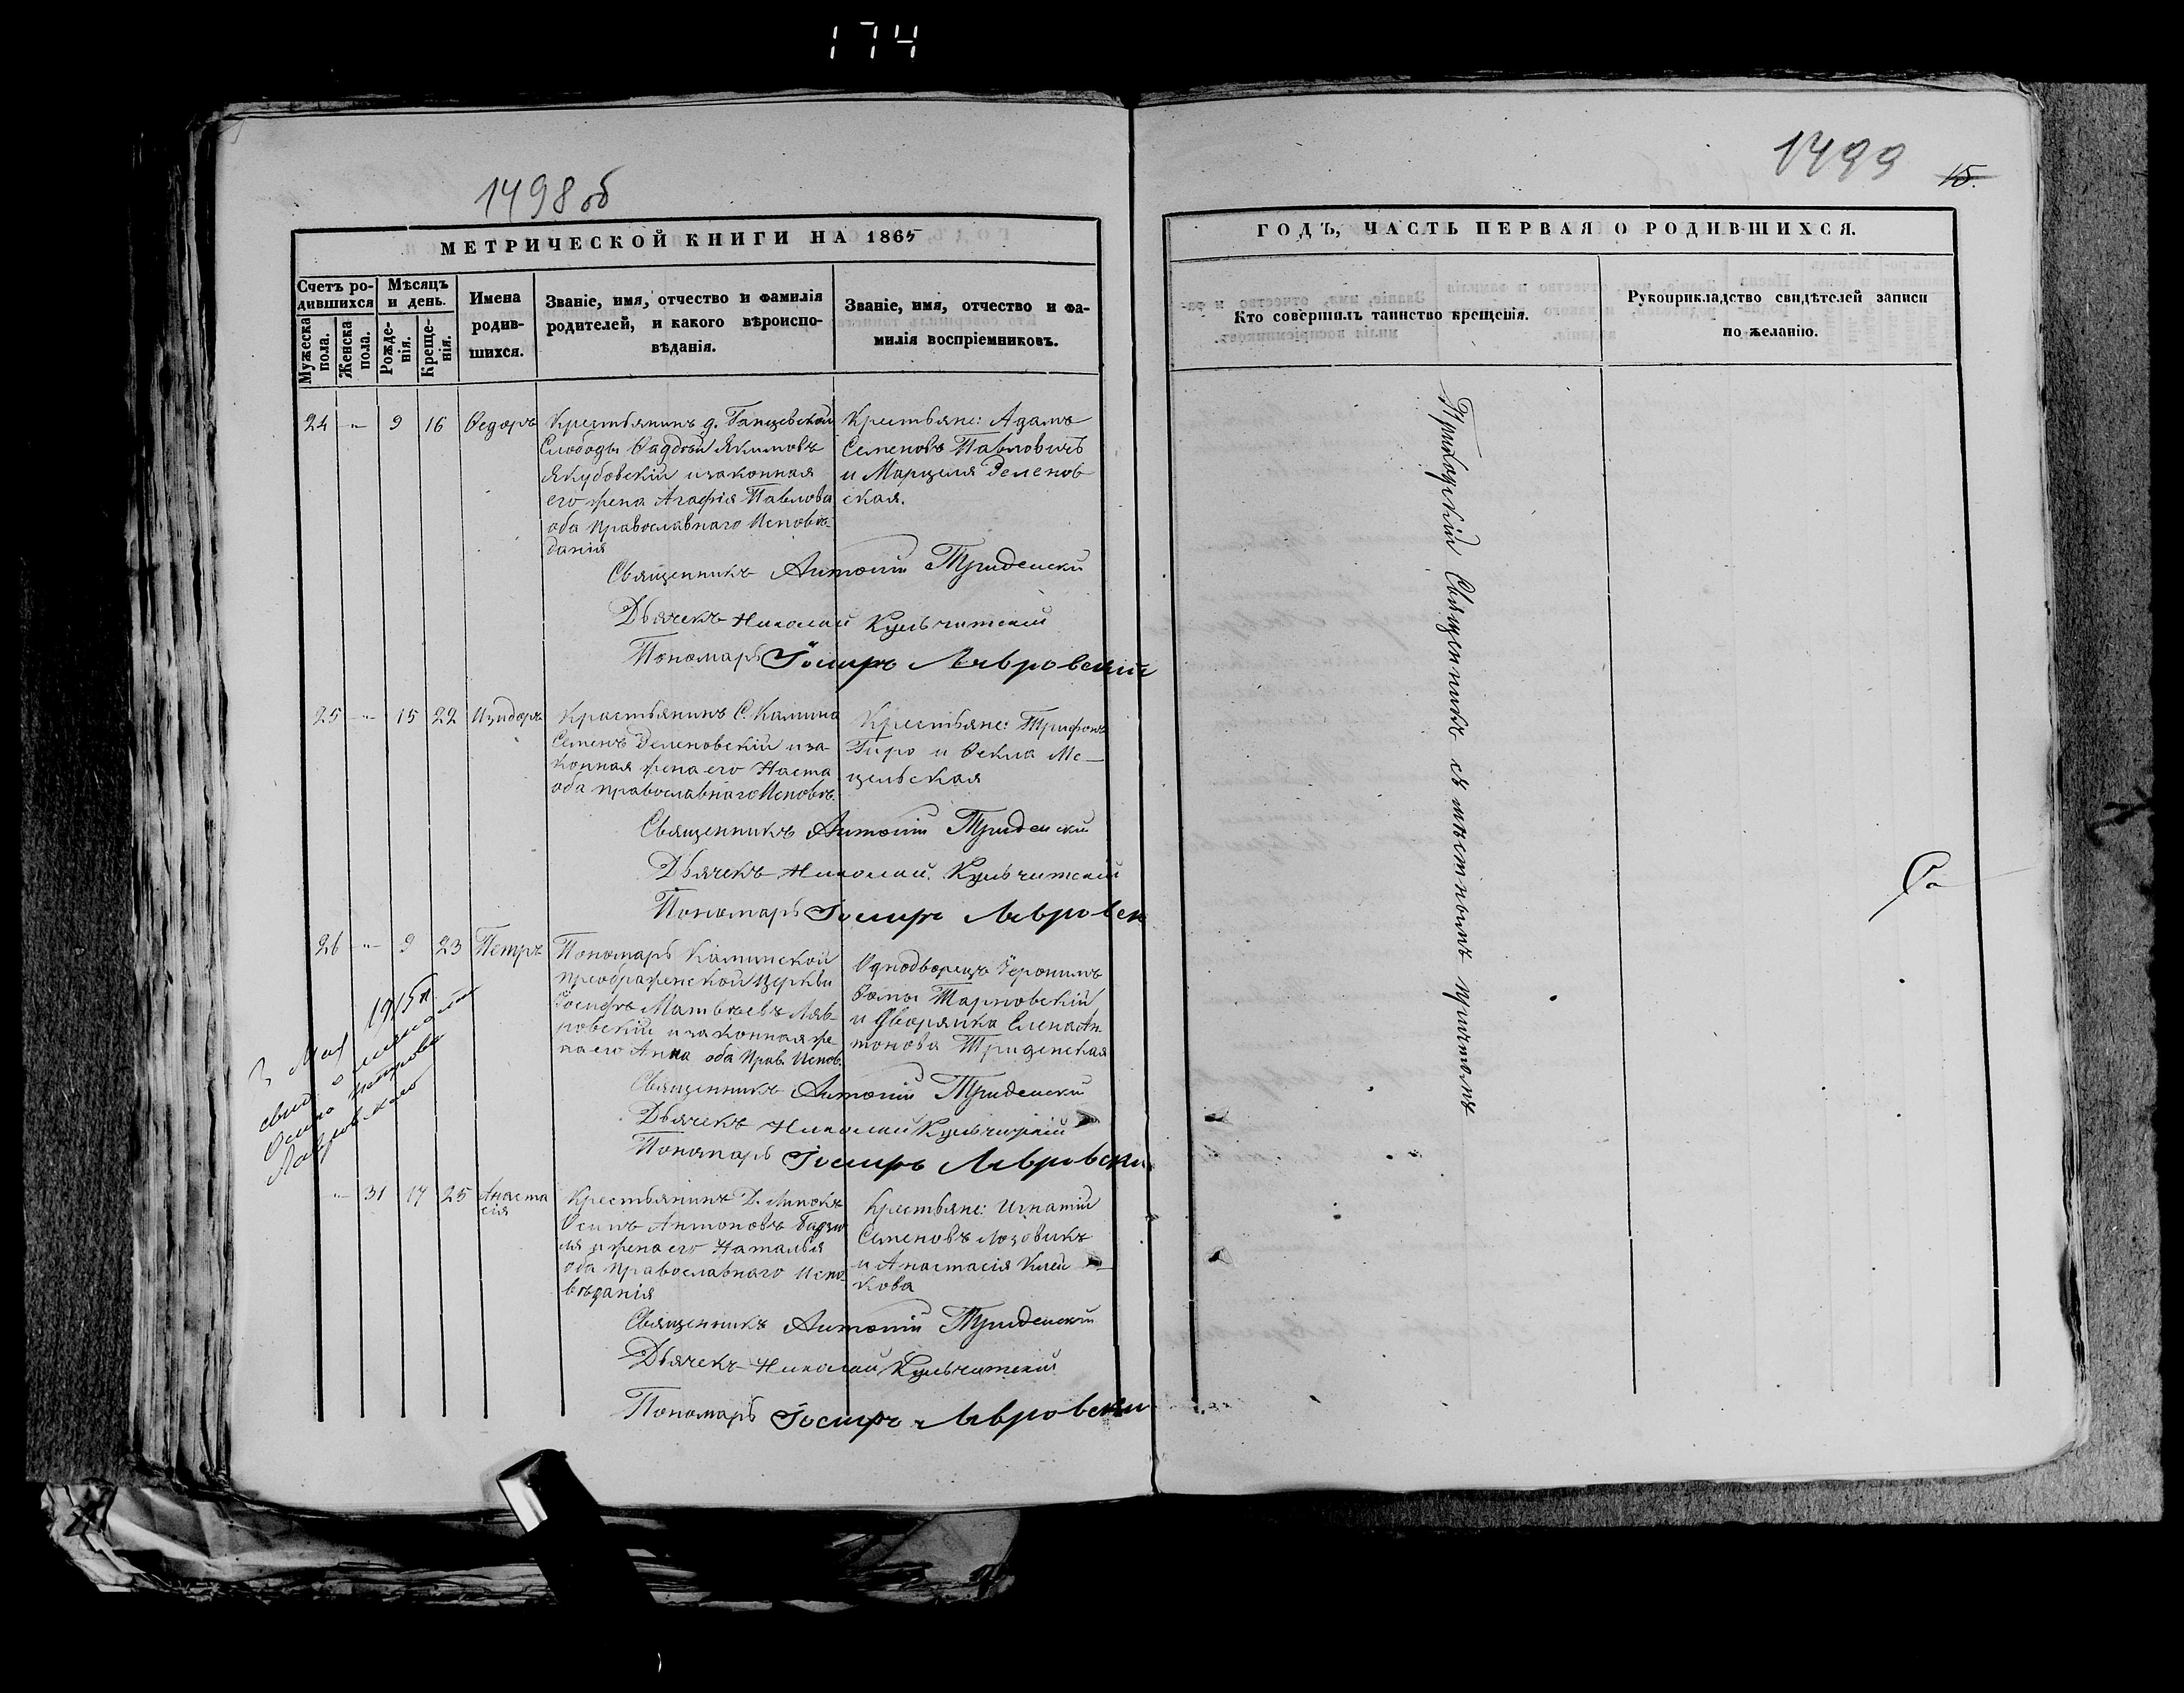 174
1498 об
МЕТРИЧЕСКОЙ КНИГИ НА 1865
Счетъ ро-
дившихся
Мужеска пола.
Женска пола.
Мѣсяцъ
и день.
Рожде-
нія.
Креще-
нія.
Имена
родив-
шихся.
Званіе, имя, отчество и фамилія
родителей, и какого вѣроиспо-
вѣданія.
Званіе, имя, отчество и фа-
милія воспріемниковъ.
24 " 9 16 Ѳедоръ
Крестьянинъ д. Ганцевской
Слободы Ѳаддей Якимовъ
Якубовскій и законная
его жена Агафія Павлова
оба православнаго Исповѣ-
данія
Крестьяне: Адамъ
Семеновъ Павловичъ
и Марцеля Деленов
ская.
Священникъ Антоній Триденски
Дьячекъ Николай Кульчитскій
Пономарь Іосифъ Лавровскій
25 " 15 22 Изидоръ
Крастьянинъ С. Камина
Семенъ Деленовскій и за-
конная жена его Наста
оба православнаго Исповѣ.
Крестьяне: Трифонъ
Гиро и Ѳекла Ме-
цельская
Священникъ Антоній Триденски
Дьячекъ Николай Кульчитскій
Пономарь Іосифъ Лавровск
26 " 9 23 Петръ
Пономарь Каминской
преображенской церкви
Іосифъ Матвѣевъ Лав-
ровскій и законная же
на его Анна оба Прав. Испов.
Однодворецъ Іеронимъ
Ѳомы Тарновскій
и Дворянка Елена Ан
тонова Триденская
3 Мая 1915 г.
Лавровскаго
Священникъ Антоній Триденски
Дьячекъ Николай Кульчицкій
Пономарь Іосифъ Лавровски
" 31 17 25 Анаста
сія
Крестьянинъ Д.
Осипъ Антоновъ
ля и жена его Наталья
оба православнаго Испо-
вѣданія
Крестьяне: Игнатій
Семеновъ Лозовикъ
и Анастасія Клей-
кова
Священникъ Антоній Триденскій
Дьячекъ Николай Кульчитскій
Пономарь Іосифъ Лавровски
1499
15.
ГОДЪ, ЧАСТЬ ПЕРВАЯ О РОДИВШИХСЯ.
Кто совершилъ таинство крещенія.
Рукоприкладство свидѣтелей записи
по желанію.
Приходскій Священникъ съ мѣстнымъ причтомъ